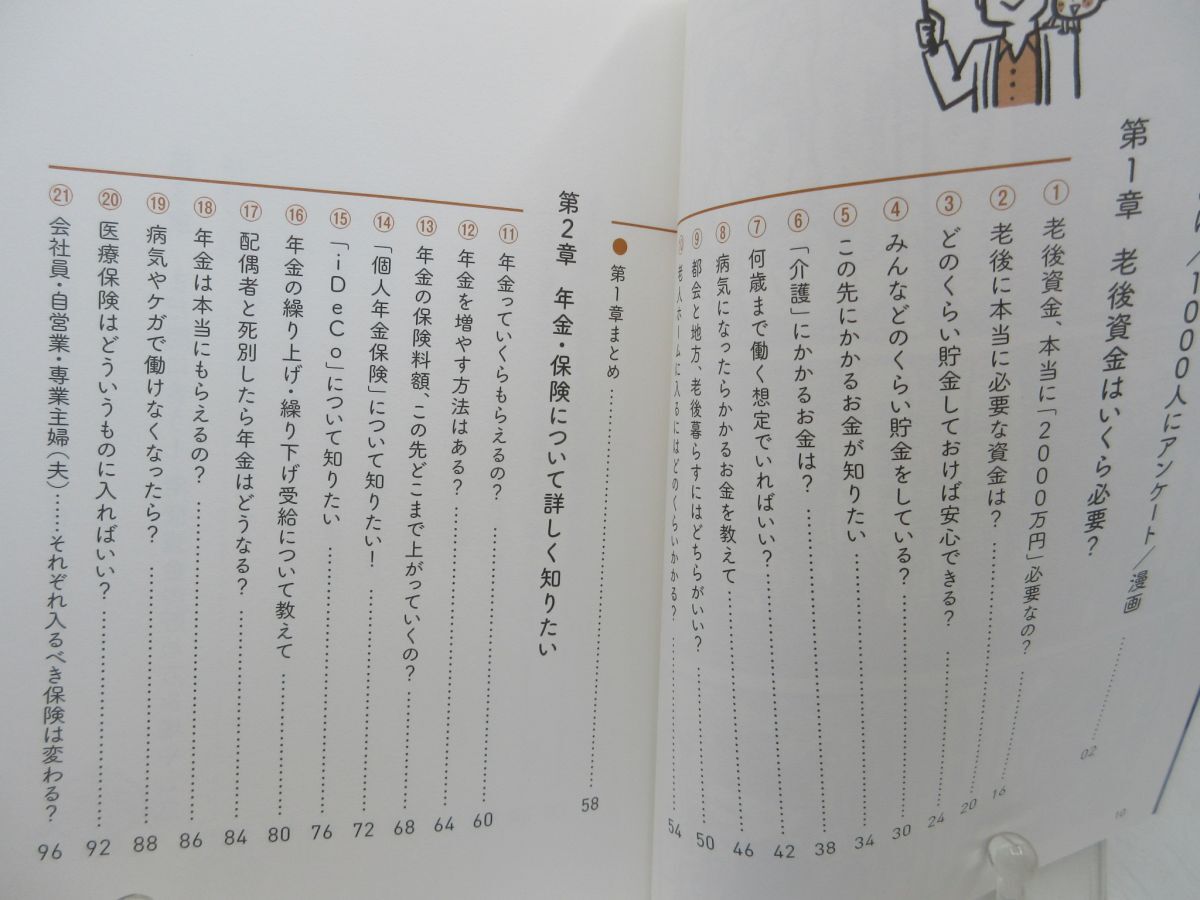 /1000人にアンケート/漫画 …… 02
第1章 老後資金はいくら必要?
① 老後資金、本当に「2000万円」必要なの? …… 16
② 老後に本当に必要な資金は? …… 20
③ どのくらい貯金しておけば安心できる? …… 24
④ みんなどのくらい貯金をしている? …… 30
⑤ この先にかかるお金が知りたい …… 34
⑥ 「介護」にかかるお金は? …… 38
⑦ 何歳まで働く想定でいればいい? …… 42
⑧ 病気になったらかかるお金を教えて …… 46
⑨ 都会と地方、老後暮らすにはどちらがいい? …… 50
⑩ 老人ホームに入るにはどのくらいかかる? …… 54
10
● 第1章まとめ …… 58
第2章 年金・保険について詳しく知りたい
⑪ 年金っていくらもらえるの? …… 60
⑫ 年金を増やす方法はある? …… 64
⑬ 年金の保険料額、この先どこまで上がっていくの? …… 68
⑭ 「個人年金保険」について知りたい! …… 72
⑮ 「iDeCo」について知りたい …… 76
⑯ 年金の繰り上げ・繰り下げ受給について教えて …… 80
⑰ 配偶者と死別したら年金はどうなる? …… 84
⑱ 年金は本当にもらえるの? …… 86
⑲ 病気やケガで働けなくなったら? …… 88
⑳ 医療保険はどういうものに入ればいい? …… 92
㉑ 会社員・自営業・専業主婦(夫)……それぞれ入るべき保険は変わる? 96